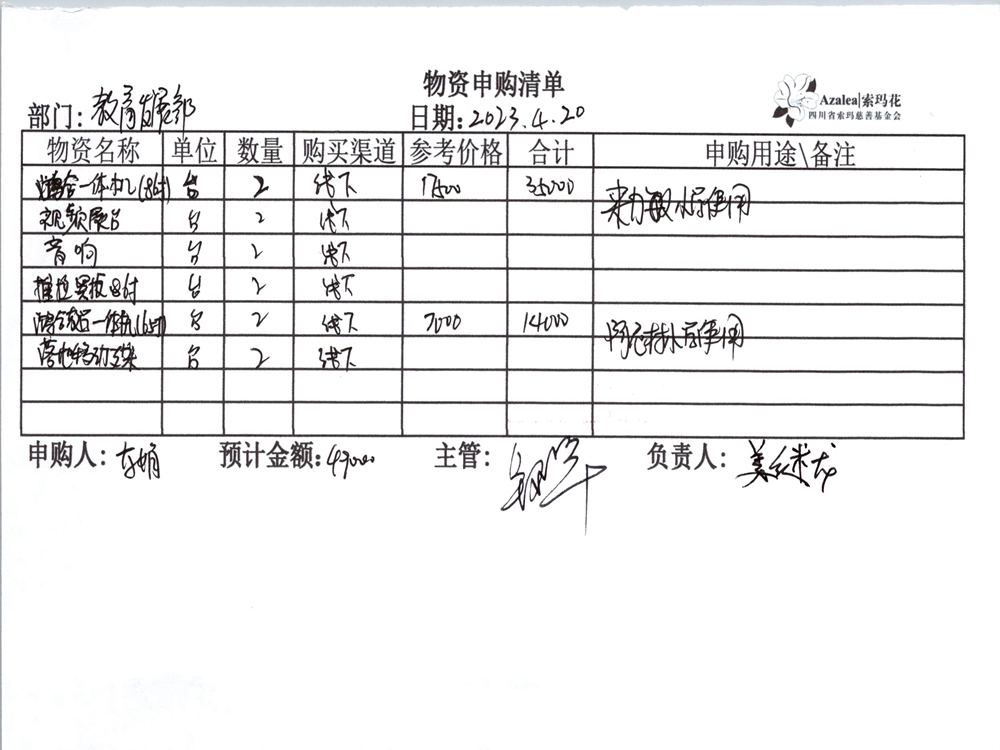 物资申购清单
Azalea|索玛花
四川省索玛慈善基金会
部门：教育发展部 日期：2023.4.20
物资名称 单位 数量 购买渠道 参考价格 合计 申购用途\备注
鸿合一体机(86寸) 台 2 线下 17500 35000 来力敏小学使用
视频展台 台 2 线下
音响 台 2 线下
推拉黑板 台 2 线下
鸿合 一体机(65寸) 台 2 线下 7000 14000 村小学使用
落地移动支架 台 2 线下
申购人： 预计金额：49000 主管： 负责人：